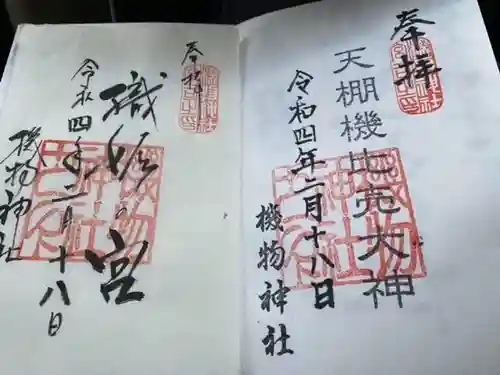 奉拝
天棚機比売大神
令和四年二月十八日
機物神社
奉拝
織姫の宮
令和四年二月十八日
機物神社